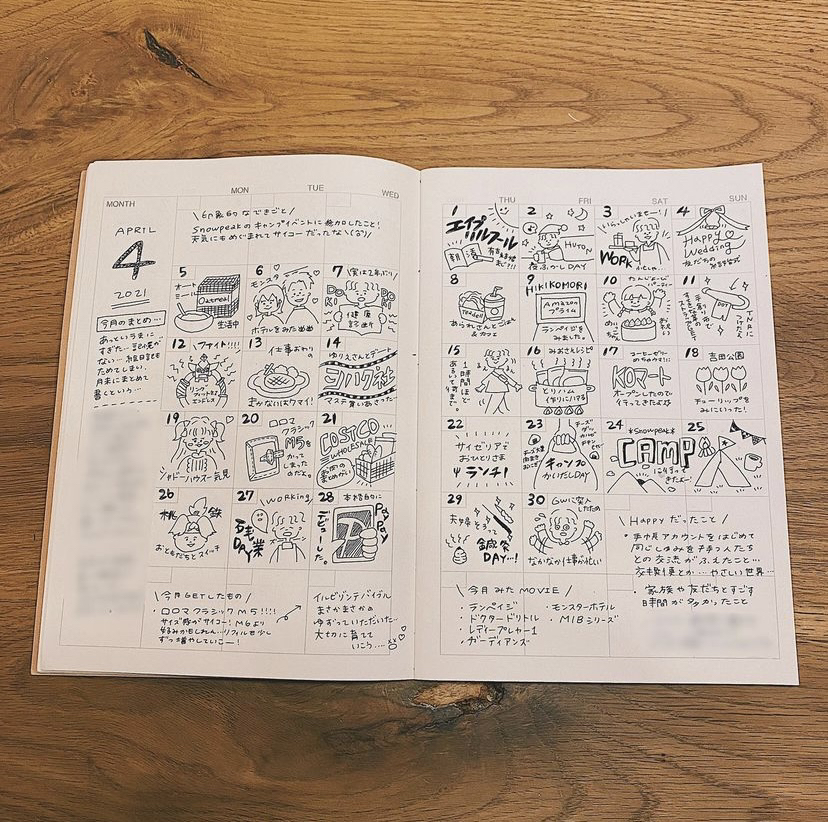 MONTH
MON
TUE
WED
THU
FRI
SAT
SUN
APRIL
4
2021
今月のまとめ…
あっというまに
すぎた…記憶が
ない…絵日記も
ためてしまい、
月末にまとめて
書くという…
\印象的なできごと/
Snowpeakのキャンプイベントに参加したこと!
天気にもめぐまれてサイコーだったな\(^o^)/
1
エイプリルフール
朝活
2
HUTON
夜ふかしDAY
3
いらっしゃいませー!
WORK
4
Happy
Wedding
5
オート
ミール
Oatmeal
生活中
6
モンスターホテルをみた
7
(実は2年ぶり)
DOKI
DOKI
健康
診断
8
あられさんとごはん
&カフェ
9
HIKIKOMORI
Amazon
プライム
ランペイジを
みました。
10
わんにゃんパーティー
11
12
\ファイト!!!!
リングフィットを
エンドレス
13
仕事おわりの
まかないはウマイ!
14
ゆりえさんとデート
ヨハク社
マステ買いあさった…
15
1日8時間ほど
あるいて
16
みおさんレシピ
とりハム
作りにハマる
17
コーセーゼリー
KOマート
オープンしたので
行ってきたよな
18
吉田公園
チューリップを
みにいった!
19
シャドーハウス一気見
20
ロロマ
クラシック
M5を
かって
しまった
のだよ。
21
COSTCO
WHOLESALE
22
サイゼリアで
おひとりさま
ランチ!
23
キャンプ
かいだしDAY
24
25
*Snowpeak*
CAMP
に行って
きたよー!
26
桃鉄
おともだちとスイッチ
27
\Working/
残業
DAY
28
本格的に
PayPay
デビューした。
29
夫婦そろって
鍼灸
DAY…!
30
GWに突入
したため
なかなか仕事が忙しい
\今月GETしたもの/
・ロロマクラシックM5!!!!
サイズ感がサイコー!M6より
好みかもしれん…リフィルも少し
ずつ増やしていこー!
イルビゾンテバイブル
まさかまさかの
ゆずっていただいた…
大切に育てて
いこう…
\今月みたMOVIE/
・ランペイジ
・ドクタードリトル
・レディープレヤー1
・ガーディアンズ
・モンスターホテル
・MIBシリーズ
\Happyだったこと/
・手帳アカウントをはじめて
同じしゅみを持つ人たち
との交流がふえたこと…
交換便とか…やさしい世界…
・家族や友だちとすごす
時間が多かったこと